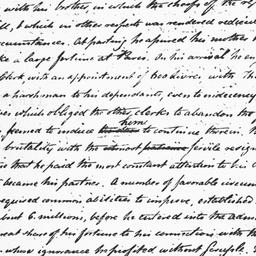 with his brother, in which the cheaps of the
ll, & which in other respects was rendered
cumstances. At parting he assured his mother
ke a large fortune at Paris. On his arrival he en
Clerk, with an appointment of 600 livres, with Th
a harshman to his dependants, even to indecency
ves which obliged the other clerks to abandon the
seemed to induce him to continue therein.
brutality with the most patience servile resign
is that he paid the most constant attention to his
became his partner. A number of favorable circum
required common abilities to improve, established
bout 6 millions, before he entered into the adm
reat share of his fortune to his connection with th
whose ignorance he profited without scruple.